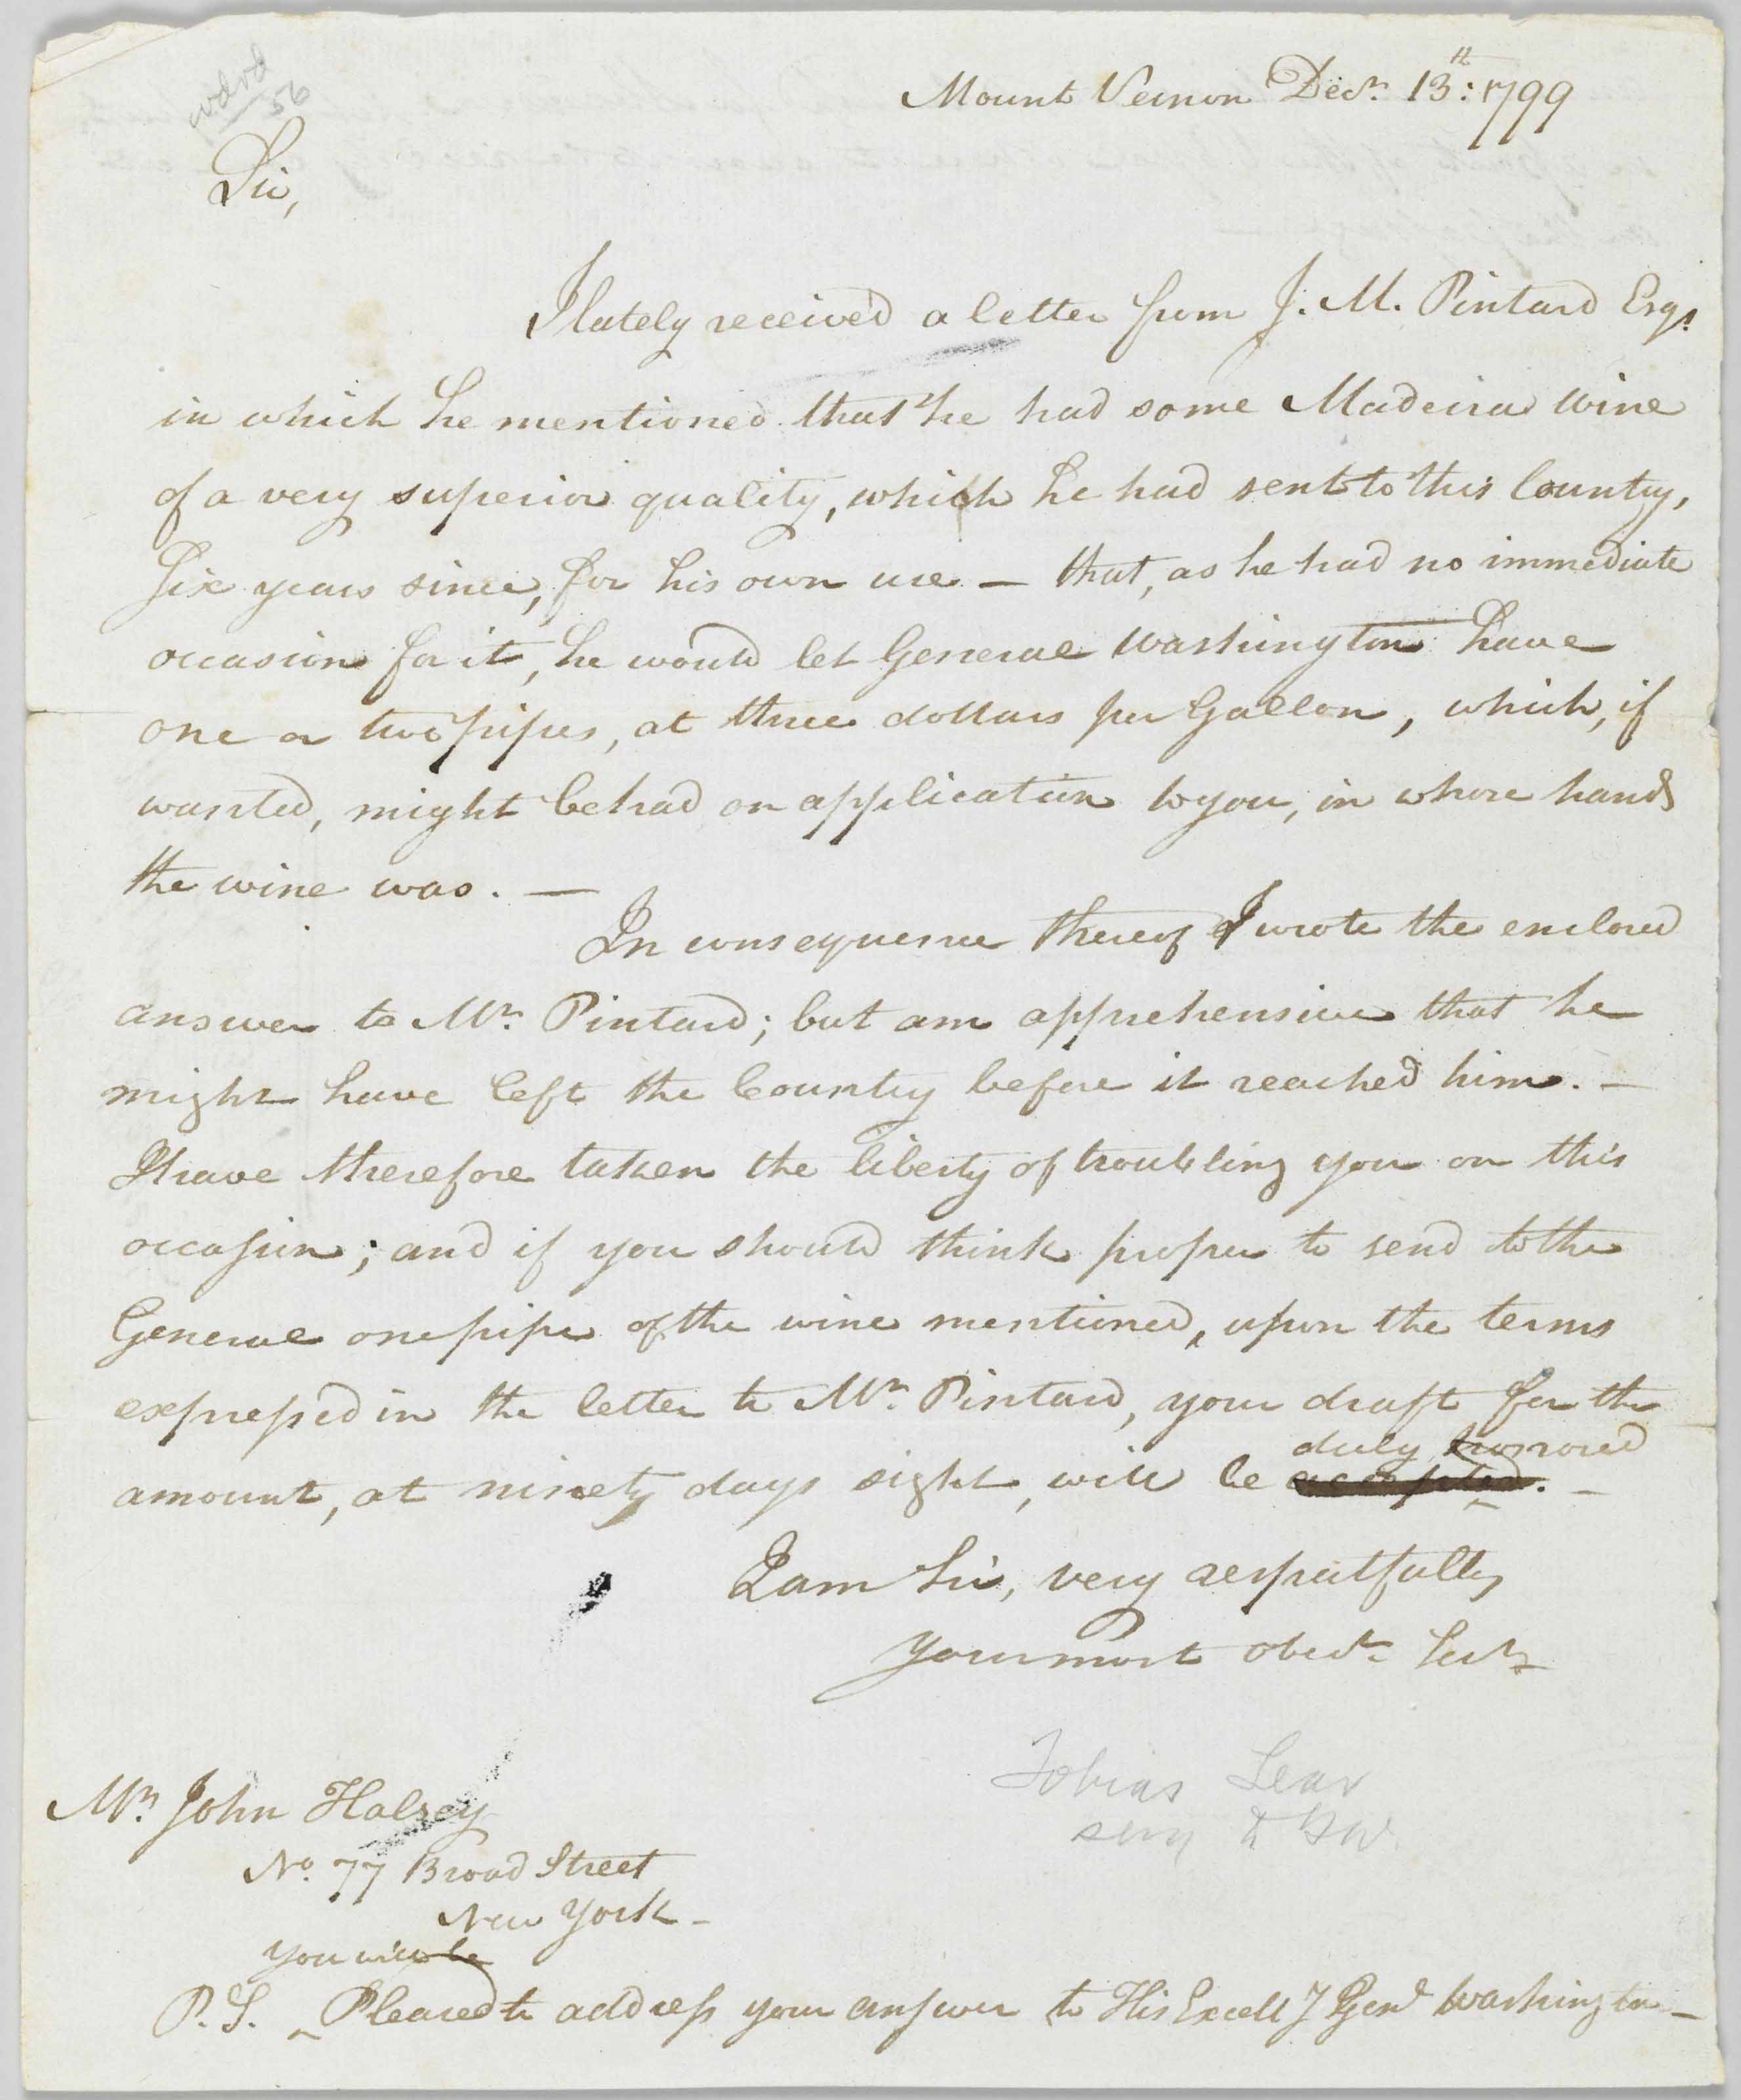 Mount Vernon Decr. 13th: 1799
Sir,
I lately received a letter from J. M. Pintard Esqr.
in which he mentioned that he had some Madeira Wine
of a very superior quality, which he had sent to this Country,
Six years since, for his own use — that, as he had no immediate
occasion for it, he would let General Washington have
one or two pipes, at three dollars per Gallon, which, if
wanted, might be had on application to you, in whose hands
the wine was. —
In consequence thereof I wrote the enclosed
answer to Mr. Pintard; but am apprehensive that he
might have left the Country before it reached him. —
I have therefore taken the liberty of troubling you on this
occasion; and if you should think proper to send to the
General one pipe of the wine mentioned, upon the terms
expressed in the letter to Mr. Pintard, your draft for the
duly honored
amount, at ninety days sight, will be accepted. —
I am Sir, very respectfully
Your most obedt. Servt.
Tobias Lear
secy to GW.
Mr. John Halsey
No. 77 Broad Street
New York —
you will be
P.S. Pleased to address your answer to His Excelly Genl Washington —